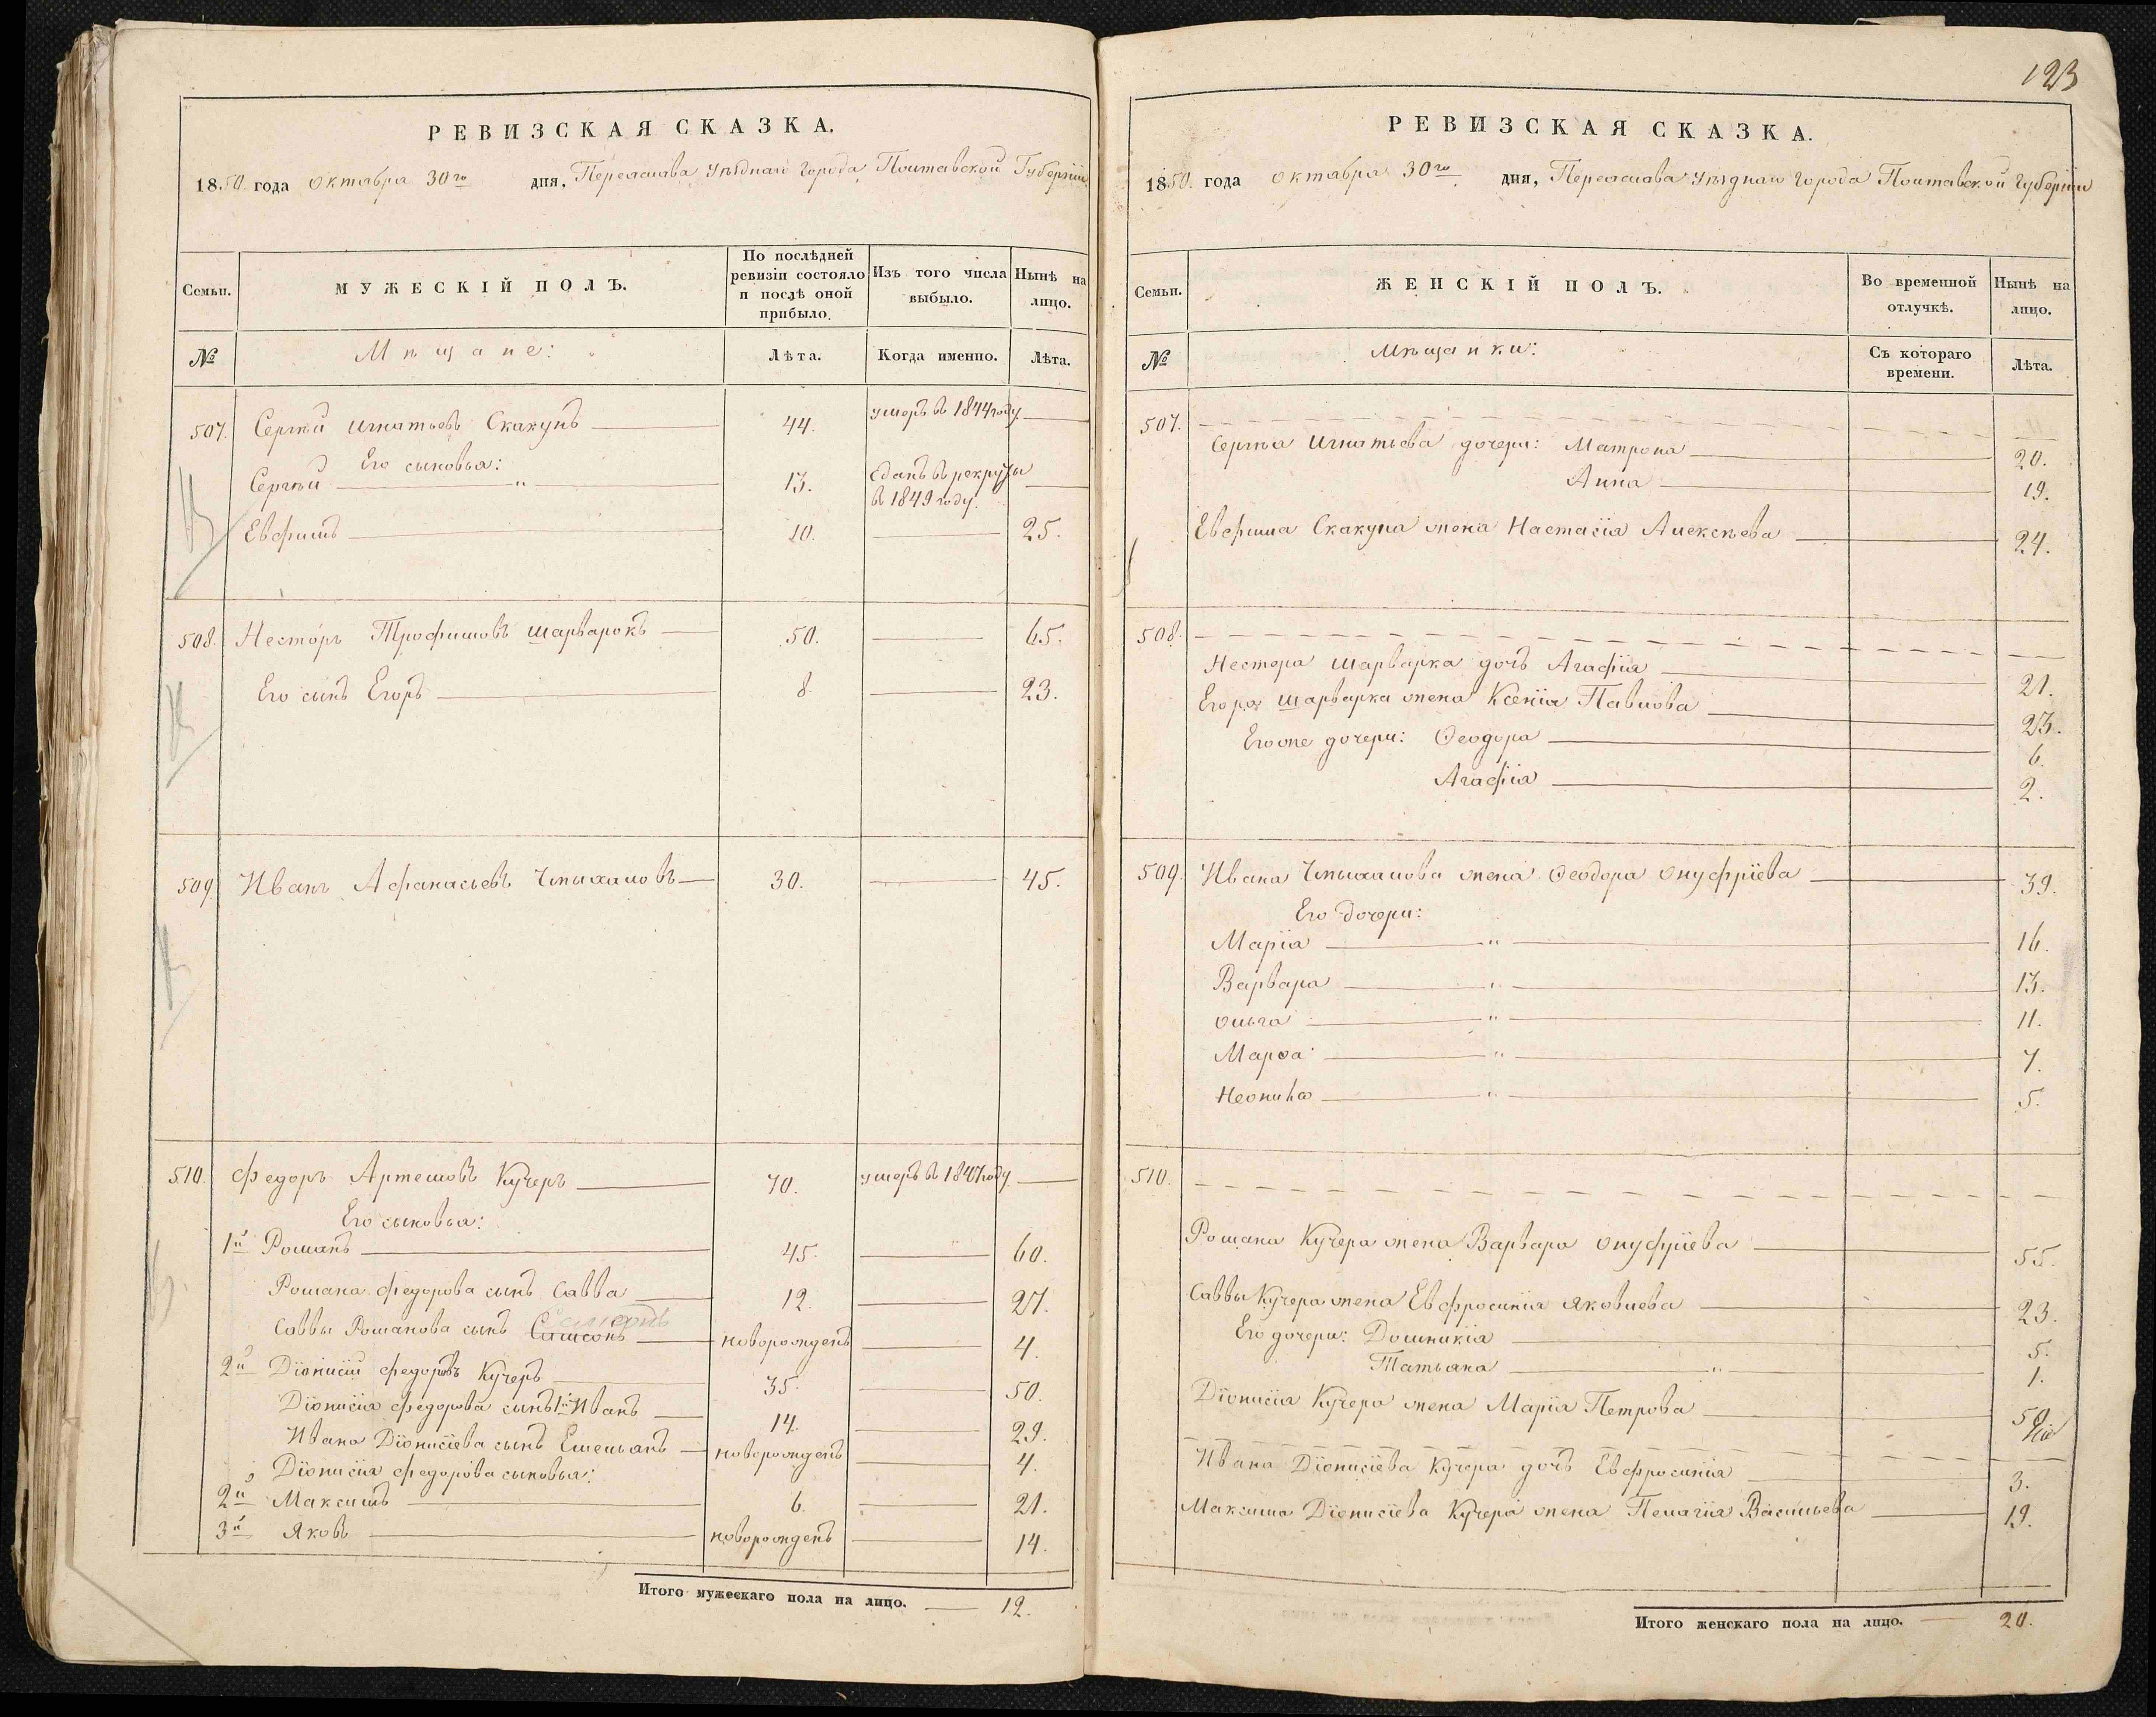 РЕВИЗСКАЯ СКАЗКА.
1850. года октября 30го дня, Переяслава уѣзднаго города Полтавской Губерніи
Семьи.
МУЖЕСКІЙ ПОЛЪ.
По послѣдней ревизіи состояло и послѣ оной прибыло.
Изъ того числа выбыло.
Нынѣ на лицо.
№
Мѣщане:
Лѣта.
Когда именно.
Лѣта.
507. Сергѣй Игнатьевъ Скакунъ 44. умеръ въ 1844 году
Его сыновья:
Сергѣй " 13. сданъ въ рекруты въ 1849 году.
Евфимъ 10. 25.
508. Несторъ Трофимовъ Шарварокъ 50. 65.
Его сынъ Егоръ 8. 23.
509. Иванъ Афанасьевъ 30. 45.
510. Федоръ Артемовъ Кучеръ 70. умеръ въ 1847 году
Его сыновья:
1й Романъ 45. 60.
Романа Федорова сынъ Савва 12. 27.
Саввы Романова сынъ Самсонъ новорожденъ 4.
2й Діонисій Федоровъ Кучеръ 35. 50.
Діонисія Федорова сынъ 1й Иванъ 14. 29.
Ивана Діонисіева сынъ Емельянъ новорожденъ 4.
Діонисія Федорова сыновья:
2й Максимъ 6. 21.
3й Яковъ новорожденъ 14.
Итого мужескаго пола на лицо. 12.
123
РЕВИЗСКАЯ СКАЗКА.
1850. года октября 30го дня, Переяслава уѣзднаго города Полтавской Губерніи
Семьи.
ЖЕНСКІЙ ПОЛЪ.
Во временной отлучкѣ.
Нынѣ на лицо.
№
Мѣщанки:
Съ котораго времени.
Лѣта.
507.
Сергѣя Игнатьева дочери: Матрона 20.
Анна 19.
Евфима Скакуна жена Настасія Алексѣева 24.
508.
Нестора Шарварка дочь Агафія 21.
Егора Шарварка жена Ксенія Павлова 23.
Егоже дочери: Ѳеодора 6.
Агафія 2.
509. Ивана жена Ѳеодора Онуфріева 39.
Его дочери:
Марія " 16.
Варвара " 13.
Ольга " 11.
Марѳа " 7.
Неонила " 5.
510.
Романа Кучера жена Варвара Онуфріева 55.
Саввы Кучера жена Евфросинія Яковлева 23.
Его дочери: Домникія 5.
Татьяна " 1.
Діонисія Кучера жена Марія Петрова 50.
Ивана Діонисіева Кучера дочь Евфросинія 3.
Максима Діонисіева Кучера жена Пелагія Васильева 19.
Итого женскаго пола на лицо. 20.